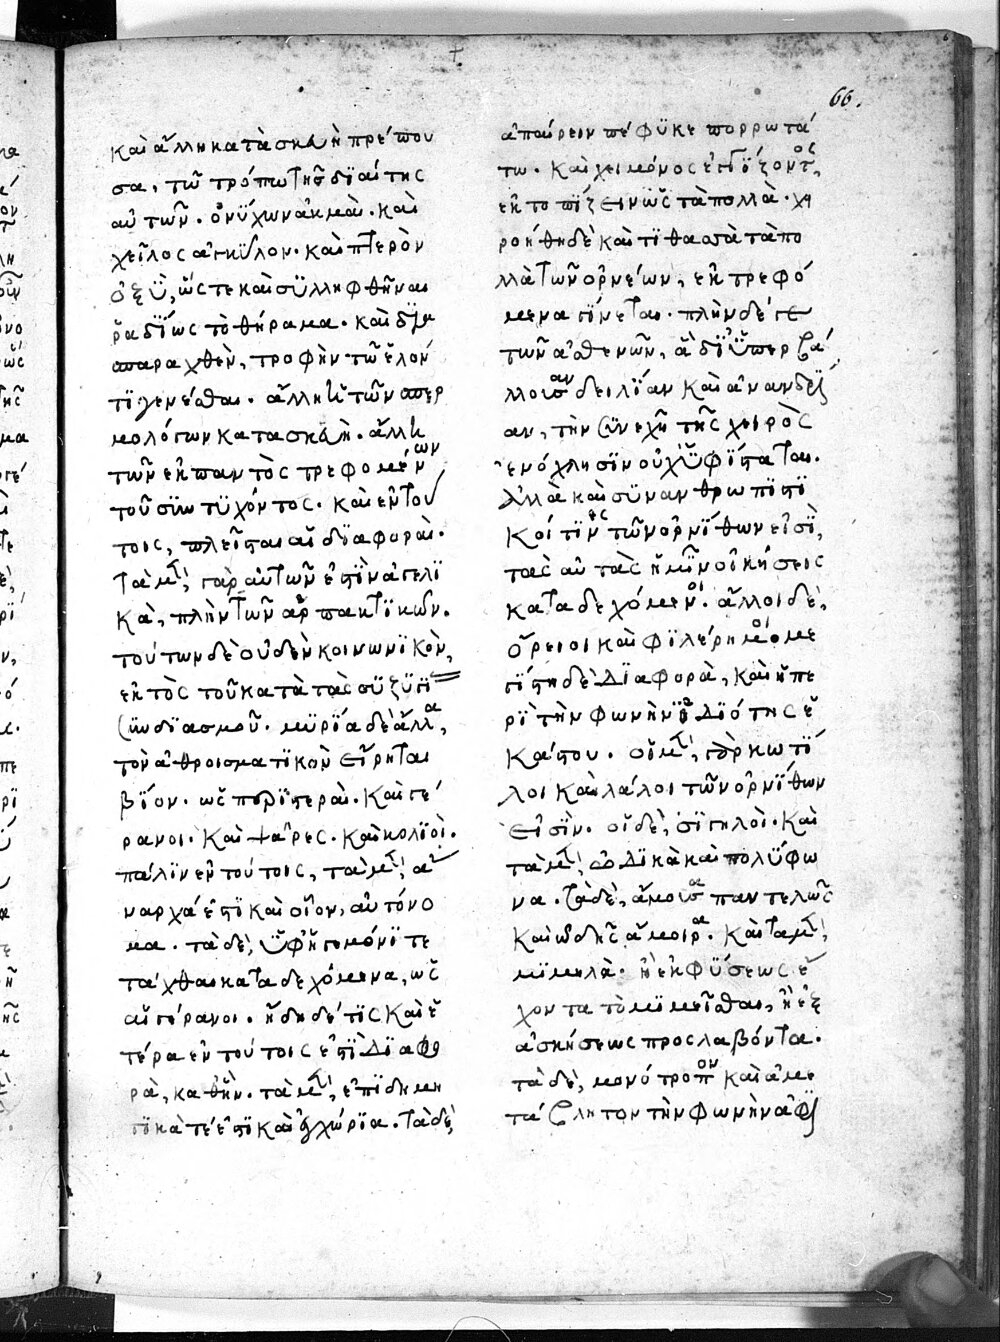 καὶ ἄλλη κατὰσκευὴ πρέπου
σα, τῶ τρόπω τῆς διαίτης
αὐτῶν. ὀνύχων ἀκμαὶ. καὶ
χεῖλος ἀγκύλον. καὶ πτερὸν
ὀξὺ, ὥστε καὶ συλληφθῆναι
ραδίως τὸ θήραμα. καὶ δια
σπαραχθὲν, τροφὴν τῶ ἑλόν
τι γενέσθαι. ἄλλη καὶ τῶν σπερ
μολόγων κατασκευὴ. ἄλλη
τῶν ἐκ παντὸς τρεφομένων
τοῦ συντυχόντος. καὶ ἐν τού
τοις, πλεῖσται αἱ διαφοραὶ.
τὰ μὲν, γὰρ αὐτῶν ἐστὶν ἀγελι
κὰ, πλὴν τῶν ἁρπακτικῶν.
τούτων δὲ οὐδὲν κοινωνικὸν,
ἐκτὸς τοῦ κατὰ τὰς συζυγί
συνδιασμοῦ. μυρία δὲ ἄλλα,
τὸν ἀθροισματικὸν εἵρηται
βίον. ὡς περιστεραὶ. καὶ γέ
ρανοι. καὶ ψᾶρες. καὶ κολιοὶ.
πάλιν ἐν τούτοις, τὰ μὲν, ἄ
ναρχά ἐστι καὶ οἷον, αὐτόνο
μα. τὰ δὲ, ὑφ' ἡγεμόνι τε
τάχθαι καταδεχόμενα, ὡς
αἱ γέρανοι. ἤδη δέ τις καὶ ἑ
τέρα ἐν τούτοις ἐστὶ διαφο
ρὰ, καθ' ἣν. τὰ μὲν, ἐπιδημη
τικά τέ ἐστι καὶ ἐγχώρια. τὰ δὲ,
ἀπαίρειν πέφυκε πορρωτά
τω. καὶ χειμόνος ἐγγίζοντος,
ἐκτοπίζειν ὡς τὰ πολλὰ. χει
ροήθη δὲ καὶ τιθασσὰ τὰ πο
λλὰ τῶν ὀρνέων, ἐκτρεφό
μενα γίνεται. πλὴν δέ γε
τῶν ἀσθενῶν, ἃ δι' ὑπερβά
λλουσαν δειλίαν καὶ ἀνανδρί
αν, τὴν συνεχῆ τῆς χειρὸς
ἐνόχλησιν οὐχ ὑφίσταται.
ἀλλὰ καὶ συνανθρωπιστι
κοί τινες τῶν ὀρνίθων εἰσὶ,
τὰς αὐτὰς ἡμῖν οἰκήσεις
καταδεχόμενοι. ἄλλοι δὲ,
ὄρειοι καὶ φιλέρημοι. με
γίστη δὲ διαφορὰ, καὶ ἡ πε
ρὶ τὴν φωνὴν ἰδιότης ἑ
κάστου. οἱ μὲν, γὰρ κωτί
λοι καὶ λάλοι τῶν ὀρνίθων
εἰσὶν. οἱ δὲ, σιγηλοὶ. καὶ
τὰ μὲν, ὠδικὰ καὶ πολύφω
να. τὰ δὲ, ἄμουσα παντελῶς
καὶ ὠδῆς ἄμοιρα. καὶ τὰ μὲν,
μιμηλὰ. ἢ ἐκ φύσεως ἔ
χοντα τὸ μιμεῖσθαι, ἢ ἐξ
ἀσκήσεως προσλαβόντα.
τὰ δὲ, μονότροπον καὶ ἀμε
τάβλητον τὴν φωνὴν ἀφί